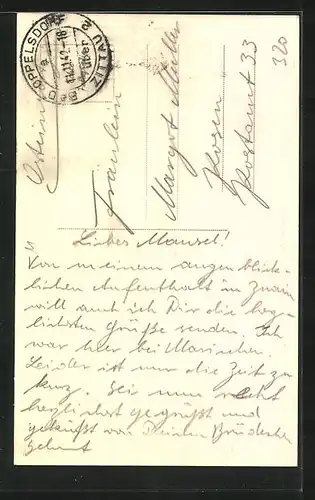 OPPELSDORF
über ZITTAU 2
14.11.42.-18
Fräulein
Margot Müller
Posen
Postamt 33
320
Liebes Mausel!
Von meinem augenblick-
lichen Aufenthalt in Znaim
will auch ich Dir die herz-
lichsten Grüße senden. Ich
war hier bei
Leider ist nur die Zeit zu
kurz. Sei nun recht
herzlichst gegrüßt und
geküßt von Deinem